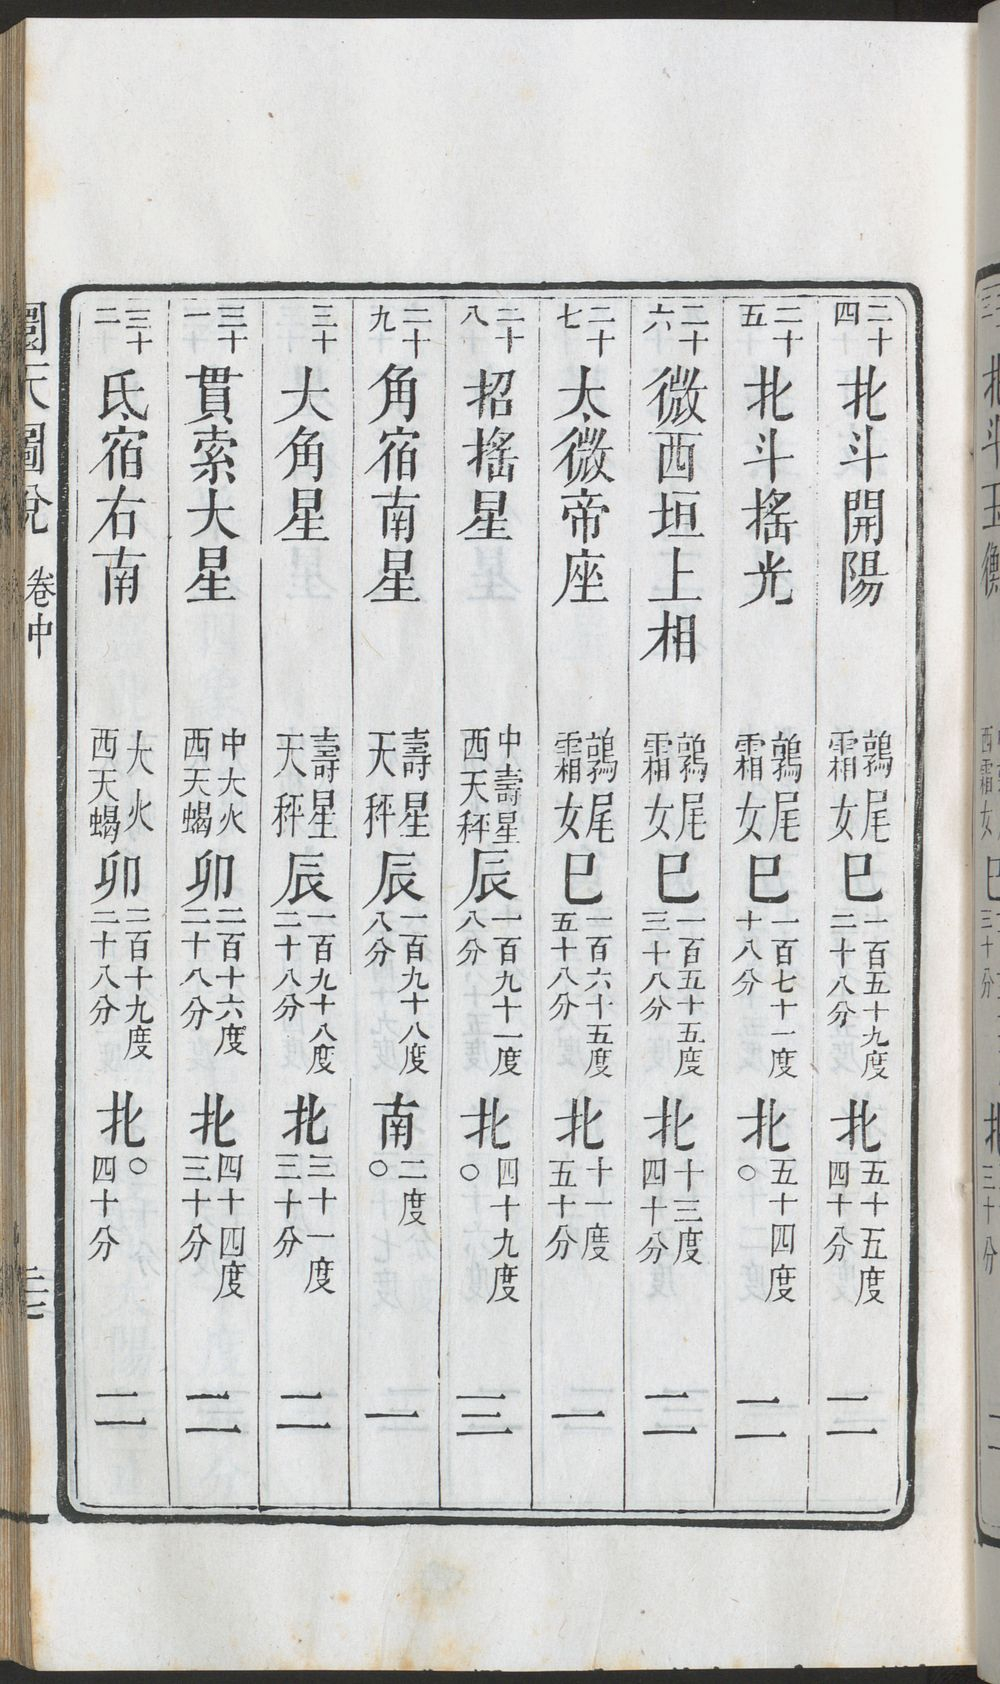 二十四 北斗開陽 鶉尾霜女 巳 一百五十九度二十八分 北 五十五度四十分 二
二十五 北斗搖光 鶉尾霜女 巳 一百七十一度十八分 北 五十四度〇 二
二十六 微西垣上相 鶉尾霜女 巳 一百五十五度三十八分 北 十三度四十分 二
二十七 太微帝座 鶉尾霜女 巳 一百六十五度五十八分 北 十一度五十分 一
二十八 招搖星 中壽星西天秤 辰 一百九十一度八分 北 四十九度〇 三
二十九 角宿南星 壽星天秤 辰 一百九十八度八分 南 二度〇 一
三十 大角星 壽星天秤 辰 一百九十八度二十八分 北 三十一度三十分 二
三十一 貫索大星 中大火西天蝎 卯 二百十六度二十八分 北 四十四度三十分 二
三十二 氐宿右南 大火西天蝎 卯 二百十九度二十八分 北 〇四十分 二
圜天圖說 卷中 二七